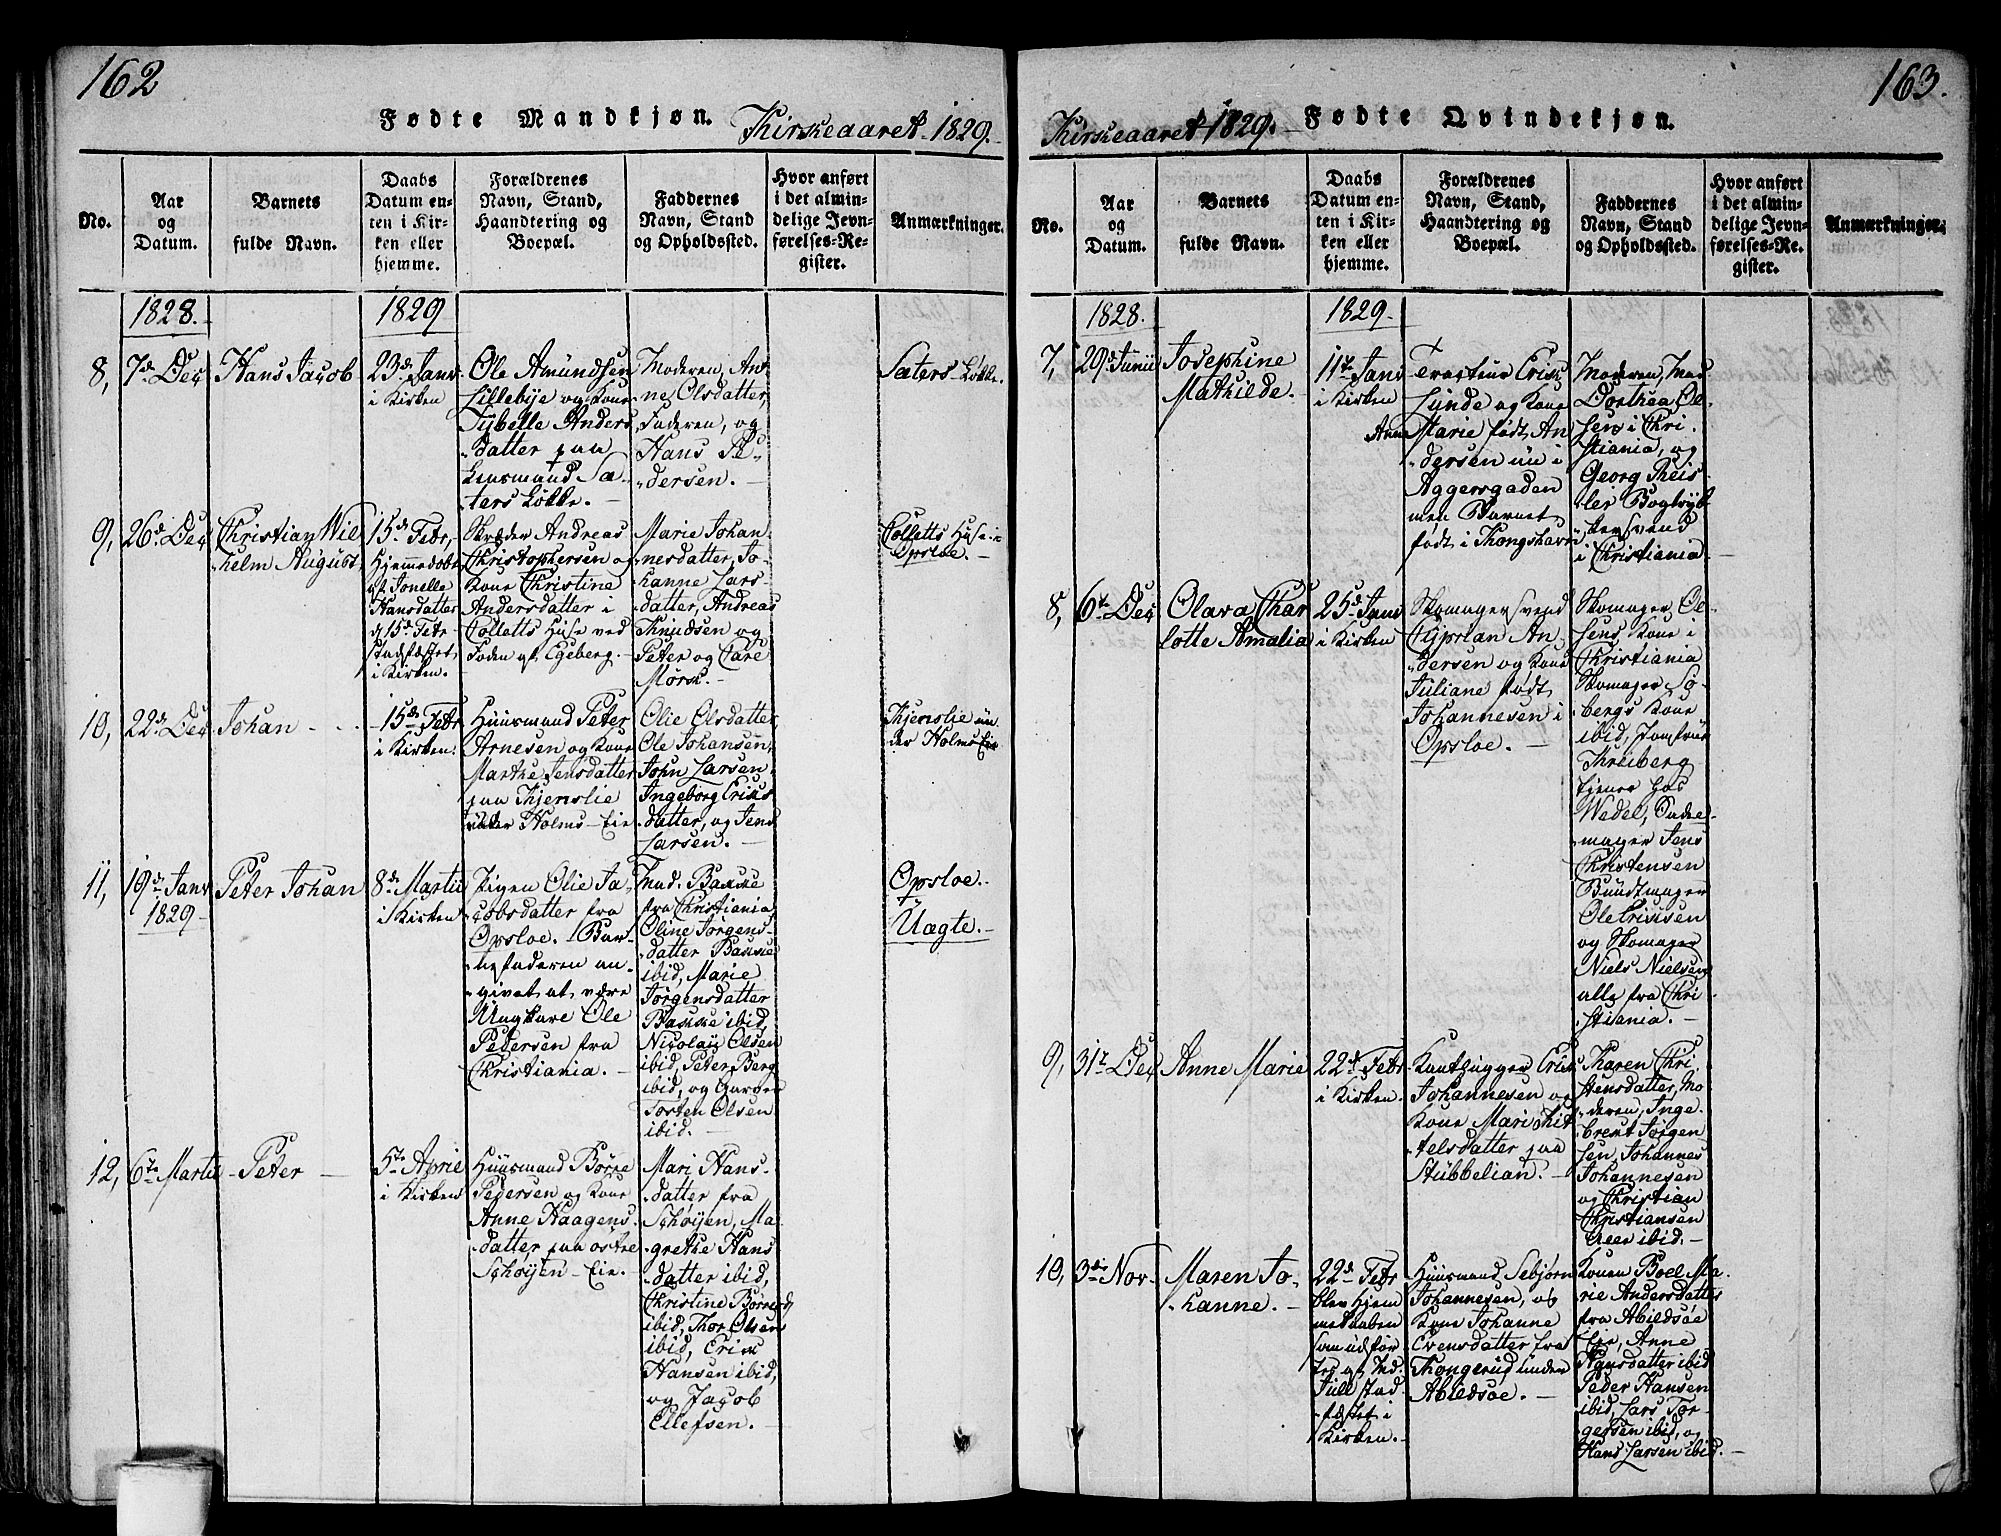 162
Fødte Mandkjøn. Kirkeaaret 1829.
No.
Aar
og
Datum.
Barnets
fulde Navn.
Daabs
Datum en-
ten i Kir-
ken eller
hjemme.
Forældrenes
Navn, Stand,
Haandtering og
Boepæl.
Faddernes
Navn, Stand
og Opholdssted.
Hvor anført
i det almin-
delige Jevn-
førelses-Re-
gister.
Anmærkninger.
1828.
1829
8,
7de Dec
Hans Jacob
23de Janv
i Kirken
Ole Amundsen
Lillebye og Kone
Sybelle Anders
datter paa
Sæ-
ters Løkke.
Moderen, An-
ne Olsdatter,
Faderen, og
Hans Pe-
dersen.
Sæters Løkke.
9,
26de Dec
Christian Wil-
helm August
15de Febr,
Hjemmedøbt
af Jonelle
Hansdatter
d 15de Febr
stadfæstet
i Kirken.
Skræder Andreas
Christophersen og
Kone Christine
Andersdatter i
Colletts Huse ved
Foden af Egeberg.
Marie Johan-
nesdatter, Jo-
hanne Lars-
datter, Andreas
Knudsen og
Peter og Care
Mørk.
Colletts Huse i
Opsloe.
10,
22de Dec
Johan
15de Febr
i Kirken.
Huusmand Peter
Arnesen og Kone
Marthe Jensdatter
paa Kjemslie
under Holms Eie
Olie Olsdatter,
Ole Johansen,
John Larsen,
Ingeborg Eriks-
datter, og Jens
Larsen.
Kjemslie un-
der Holms Eie
11,
19de Janv
1829
Peter Johan
8de Martii
i Kirken
Pigen Olie Ja-
cobsdatter fra
Opsloe. Bar-
nefaderen an-
givet at være
Ungkarl Ole
Pedersen fra
Christiania.
Mad. Bakke
fra Christiania,
Oline Jørgens-
datter Bakke
ibid, Marie
Jørgensdatter
Bakke ibid,
Nicolay Olsen
ibid, Peter Berg
ibid, og
Torsten Olsen
ibid.
Opsloe.
Uægte.
12,
6te Martii
Peter
5te April
i Kirken
Huusmand Børre
Pedersen og Kone
Anne Haagens-
datter paa østre
Schøyen Eie.
Mari Hans-
datter fra
Schøyen, Ma-
grethe Hans
datter ibid,
Christine Børresd
ibid, Thor Olsen
ibid, Erik
Hansen ibid,
og Jacob
Ellefsen.
163.
Kirkeaaret 1829. Fødte Qvindekjøn.
No.
Aar
og
Datum.
Barnets
fulde Navn.
Daabs
Datum en-
ten i Kir-
ken eller
hjemme.
Forældrenes
Navn, Stand,
Haandtering og
Boepæl.
Faddernes
Navn, Stand
og Opholdssted.
Hvor anført
i det almin-
delige Jevn-
førelses-Re-
gister.
Anmærkninger.
1828.
1829.
7,
29de Junii
Josephine
Mathilde.
11te Janv
i Kirken
Erik
Lunde og Kone
Anne Marie født An-
dersen nu i
Aggersgaden
men Barnet
født i Kongshavn
Moderen, Mad
Dorthea Ol-
sen i Chri-
stiania, og
Georg Theis-
ler Bogtryk-
kersvend
i Christiania
8,
6te Dec
Olava Char
lotte Amalia
25de Janv
i Kirken
Skomagersvend
Cyprian An-
dersen og Kone
Juliane født
Johannesen i
Opsloe.
Skomager Ol-
sens Kone i
Christiania
Skomager So-
bergs Kone
ibid, Jomfrue
Threiberg
tjener hos
Wedel,
mager Jens
Christensen
Bundtmager
Ole Eriksen
og Skomager
Niels Nielsen
alle fra Chri-
stiania.
9,
31te Dec
Anne Marie
22de Febr
i Kirken.
Erik
Johannesen og
Kone Mari Kit-
telsdatter paa
Stubbelian.
Karen Chri-
stensdatter, Mo-
deren, Inge-
bret Jørgen-
sen, Johannes
Johannesen
og Christian
Christiansen
alle ibid.
10,
3die Nov
Maren Jo-
hanne.
22de Febr
blev Hjem-
medaaben
som udfør-
tes af Md.
Juell stad-
fæstet i
Kirken.
Huusmand Sebjørn
Johannesen, og
Kone Johanne
Evensdatter fra
Kongerud under
Abildsøe.
Konen Boel Ma-
rie Andersdatter
fra Abildsøe
Eie, Anne
Hansdatter ibid
Peder Hansen
ibid, Lars Tor-
gersen ibid, og
Hans Larsen ibid.